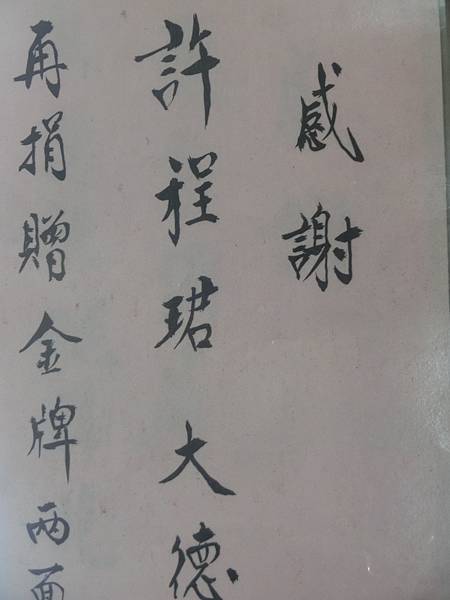 感謝
許程珺大德
再捐贈金牌兩面